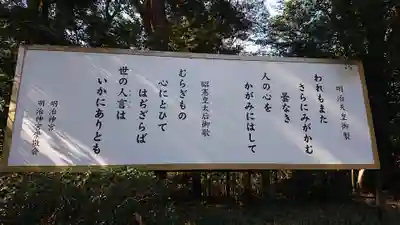 明治天皇御製
われもまた
さらにみがかむ
曇なき
人の心を
かがみにはして
昭憲皇太后御歌
むらぎもの
心にとひて
はぢざらば
世の人言は
いかにありとも
明治神宮
明治神宮崇敬会